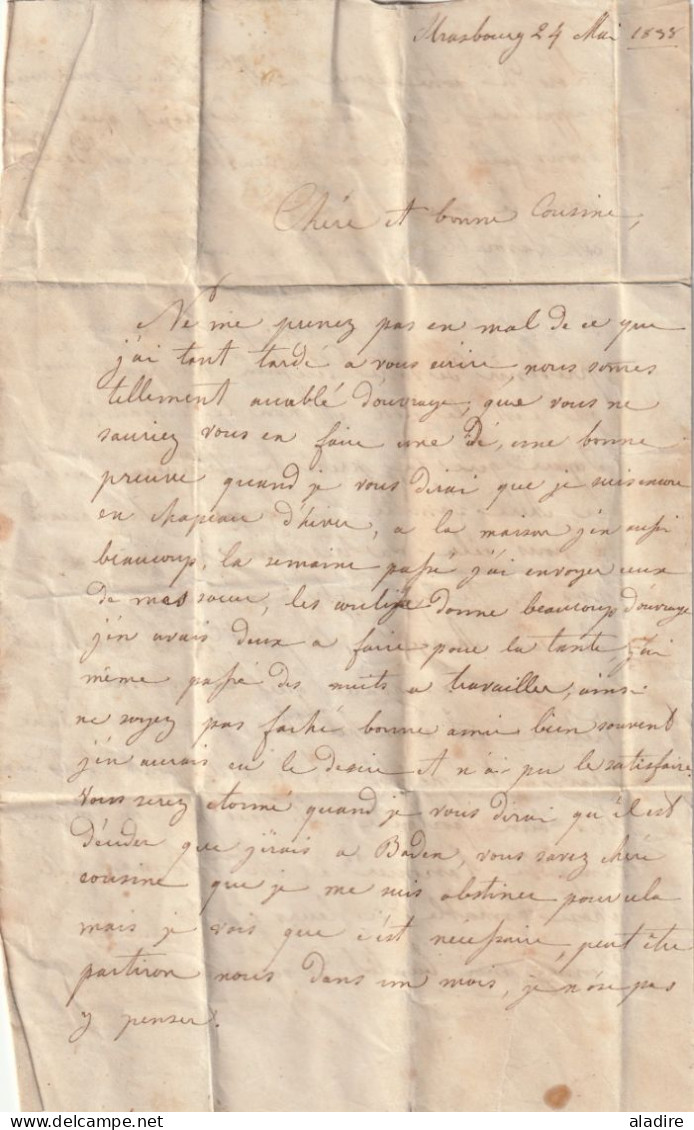 Strasbourg 24 Mai 1838
Chére et bonne Cousine,
Ne me prenez pas en mal de ce que
j'ai tant tardé a vous ecrire, nous somes
tellement accablé d'ouvrage, que vous ne
sauriez vous en faire une Dé, une bonne
preuve quand je vous dirai que je suis encore
en chapeau d'hiver, a la maison j'en aussi
beaucoup, la semaine passé j'ai envoyer ceux
de mes soeur, les donne beaucoup d'ouvrage
j'en avais deux a faire pour la tante, j'ai
même passé des nuits a travailler, ainsi
ne soyez pas faché bonne amie bien souvent
j'en aurais eu le desire et n'ai pu le satisfaire
vous serez etonné quand je vous dirai qu'il est
décider que j'irais a Baden, vous savez chére
cousine que je me suis obstinee pour cela
mais je vois que c'est nécessaire, peut être
partiron nous dans un mois, je n'ose pas
y penser.
aladire